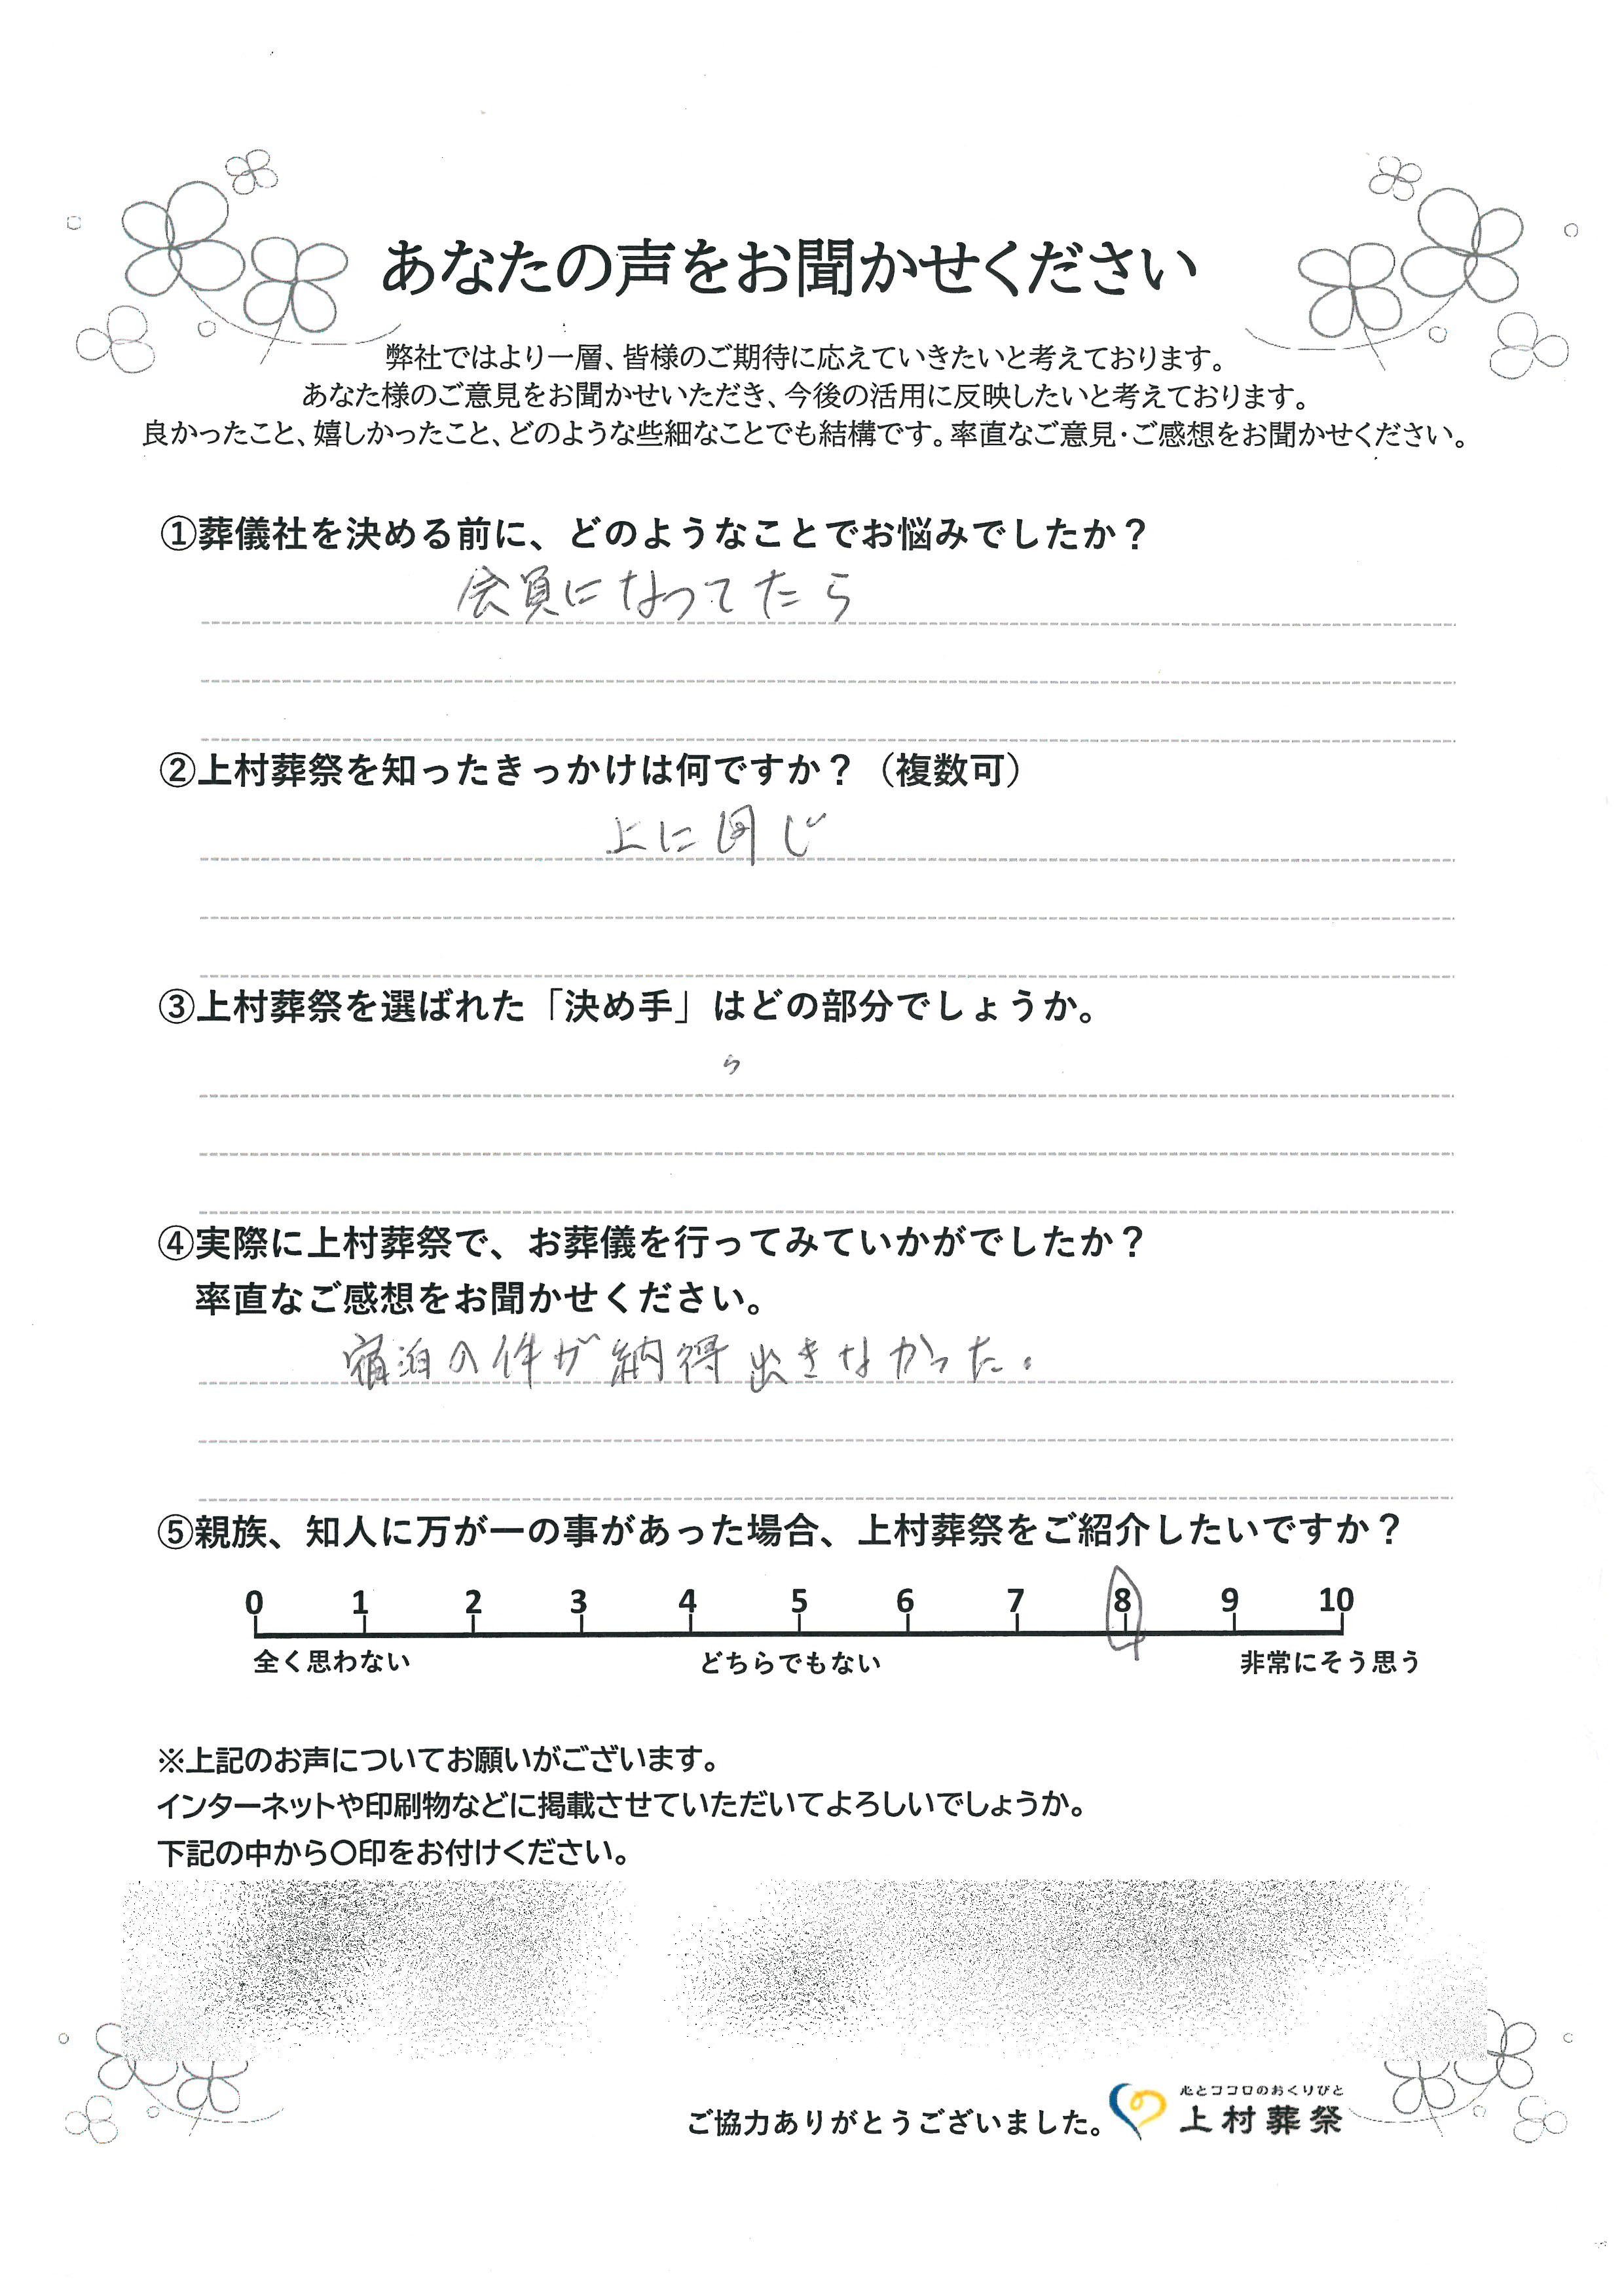 あなたの声をお聞かせください
弊社ではより一層、皆様のご期待に応えていきたいと考えております。
あなた様のご意見をお聞かせいただき、今後の活用に反映したいと考えております。
良かったこと、嬉しかったこと、どのような些細なことでも結構です。率直なご意見・ご感想をお聞かせください。
①葬儀社を決める前に、どのようなことでお悩みでしたか？
会員になってたら
②上村葬祭を知ったきっかけは何ですか？（複数可）
上に同じ
③上村葬祭を選ばれた「決め手」はどの部分でしょうか。
④実際に上村葬祭で、お葬儀を行ってみていかがでしたか？
率直なご感想をお聞かせください。
宿泊の件が納得出きなかった。
⑤親族、知人に万が一の事があった場合、上村葬祭をご紹介したいですか？
0 1 2 3 4 5 6 7 8 9 10
全く思わない どちらでもない 非常にそう思う
※上記のお声についてお願いがございます。
インターネットや印刷物などに掲載させていただいてよろしいでしょうか。
下記の中から〇印をお付けください。
心とココロのおくりびと
ご協力ありがとうございました。 上村葬祭